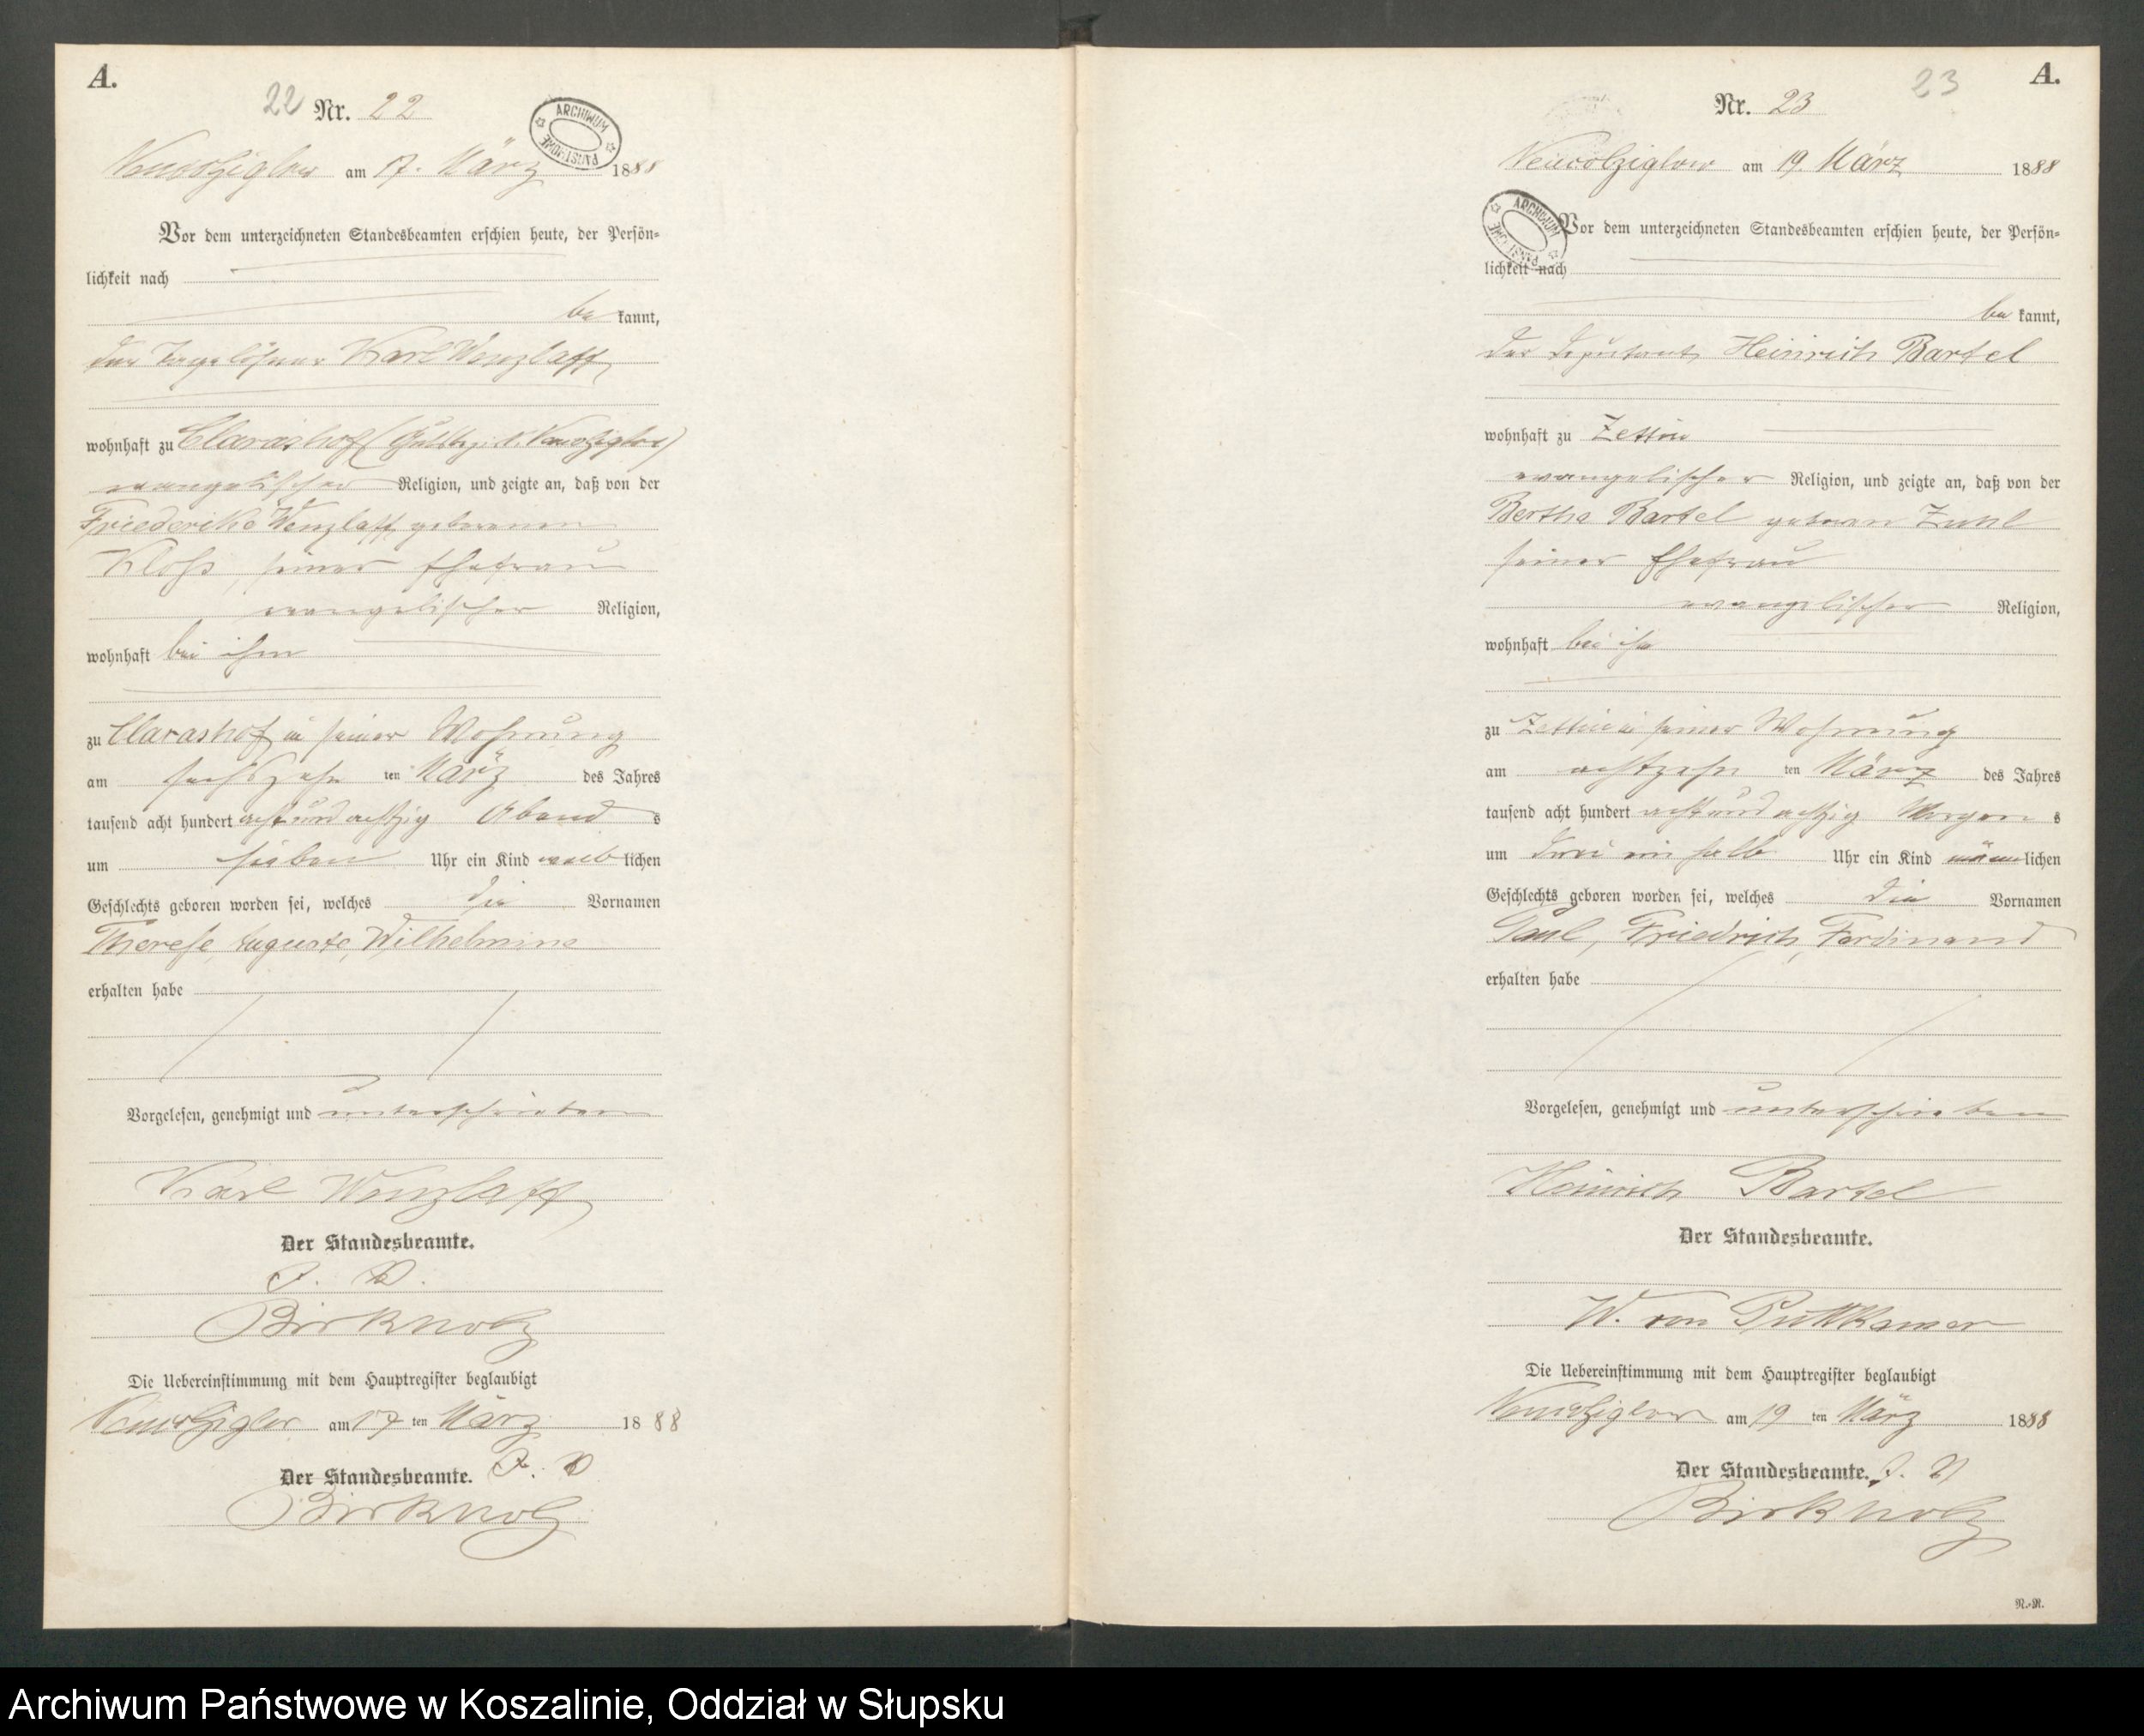 A.
22 Nr. 22
ARCHIWUM PAŃSTWOWE
Neuwolziglow am 17. März 1888
Vor dem unterzeichneten Standesbeamten erschien heute, der Persön-
lichkeit nach
be kannt,
der Tagelöhner Karl Wenzlaff
wohnhaft zu Clarashof ( Neuwolziglow)
evangelischer Religion, und zeigte an, daß von der
Friederike Wenzlaff geborenen
Kloß, seiner Ehefrau
evangelischer Religion,
wohnhaft bei ihm
zu Clarashof in seiner Wohnung
am sechszehn ten März des Jahres
tausend acht hundert acht und achtzig Abend s
um sieben Uhr ein Kind weib lichen
Geschlechts geboren worden sei, welches die Vornamen
Therese, Auguste, Wilhelmine
erhalten habe
Vorgelesen, genehmigt und unterschrieben
Karl Wenzlaff
Der Standesbeamte.
J. V.
Birkholz
Die Uebereinstimmung mit dem Hauptregister beglaubigt
Neuwolziglow am 17 ten März 1888
Der Standesbeamte. J. V
Birkholz
23 A.
Nr. 23
Neuwolziglow am 19. März 1888
ARCHIWUM PAŃSTWOWE
Vor dem unterzeichneten Standesbeamten erschien heute, der Persön-
lichkeit nach
be kannt,
der Deputant Heinrich Bartel
wohnhaft zu Zettin
evangelischer Religion, und zeigte an, daß von der
Bertha Bartel geboren
seiner Ehefrau
evangelischer Religion,
wohnhaft bei ihm
zu Zettin in seiner Wohnung
am achtzehn ten März des Jahres
tausend acht hundert acht und achtzig Morgen s
um drei ein halb Uhr ein Kind männ lichen
Geschlechts geboren worden sei, welches die Vornamen
Paul, Friedrich, Ferdinand
erhalten habe
Vorgelesen, genehmigt und unterschrieben
Heinrich Bartel
Der Standesbeamte.
W. von Puttkamer
Die Uebereinstimmung mit dem Hauptregister beglaubigt
Neuwolziglow am 19 ten März 1888
Der Standesbeamte. J. V
Birkholz
N.-R.
Archiwum Państwowe w Koszalinie, Oddział w Słupsku